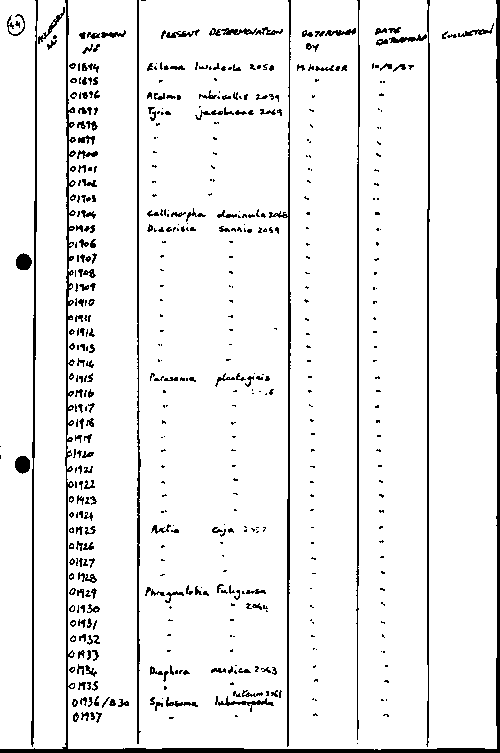 44
SPECIMEN No PRESENT DETERMINATION DETERMINED BY DATE DETERMINED COLLECTION
01894 Eilema lurideola 2050 M. HAXLER 10/8/87
01895 " " " "
01896 Atolmis rubricollis 2039 " "
01897 Tyria jacobaeae 2069 " "
01898 " " " "
01899 " " " "
01900 " " " "
01901 " " " "
01902 " " " "
01903 " " " "
01904 Callimorpha dominula 2068 " "
01905 Diacrisia sannio 2059 " "
01906 " " " "
01907 " " " "
01908 " " " "
01909 " " " "
01910 " " " "
01911 " " " "
01912 " " " "
01913 " " " "
01914 " " " "
01915 Parasemia plantaginis " "
01916 " " " "
01917 " " " "
01918 " " " "
01919 " " " "
01920 " " " "
01921 " " " "
01922 " " " "
01923 " " " "
01924 " " " "
01925 Arctia caja " "
01926 " " " "
01927 " " " "
01928 " " " "
01929 Phragmatobia fuliginosa " "
01930 " " 2064 " "
01931 " " " "
01932 " " " "
01933 " " " "
01934 Diaphora mendica 2063 " "
01935 " " " "
01936/830 Spilosoma luteum 2061 " "
01937 " " " "